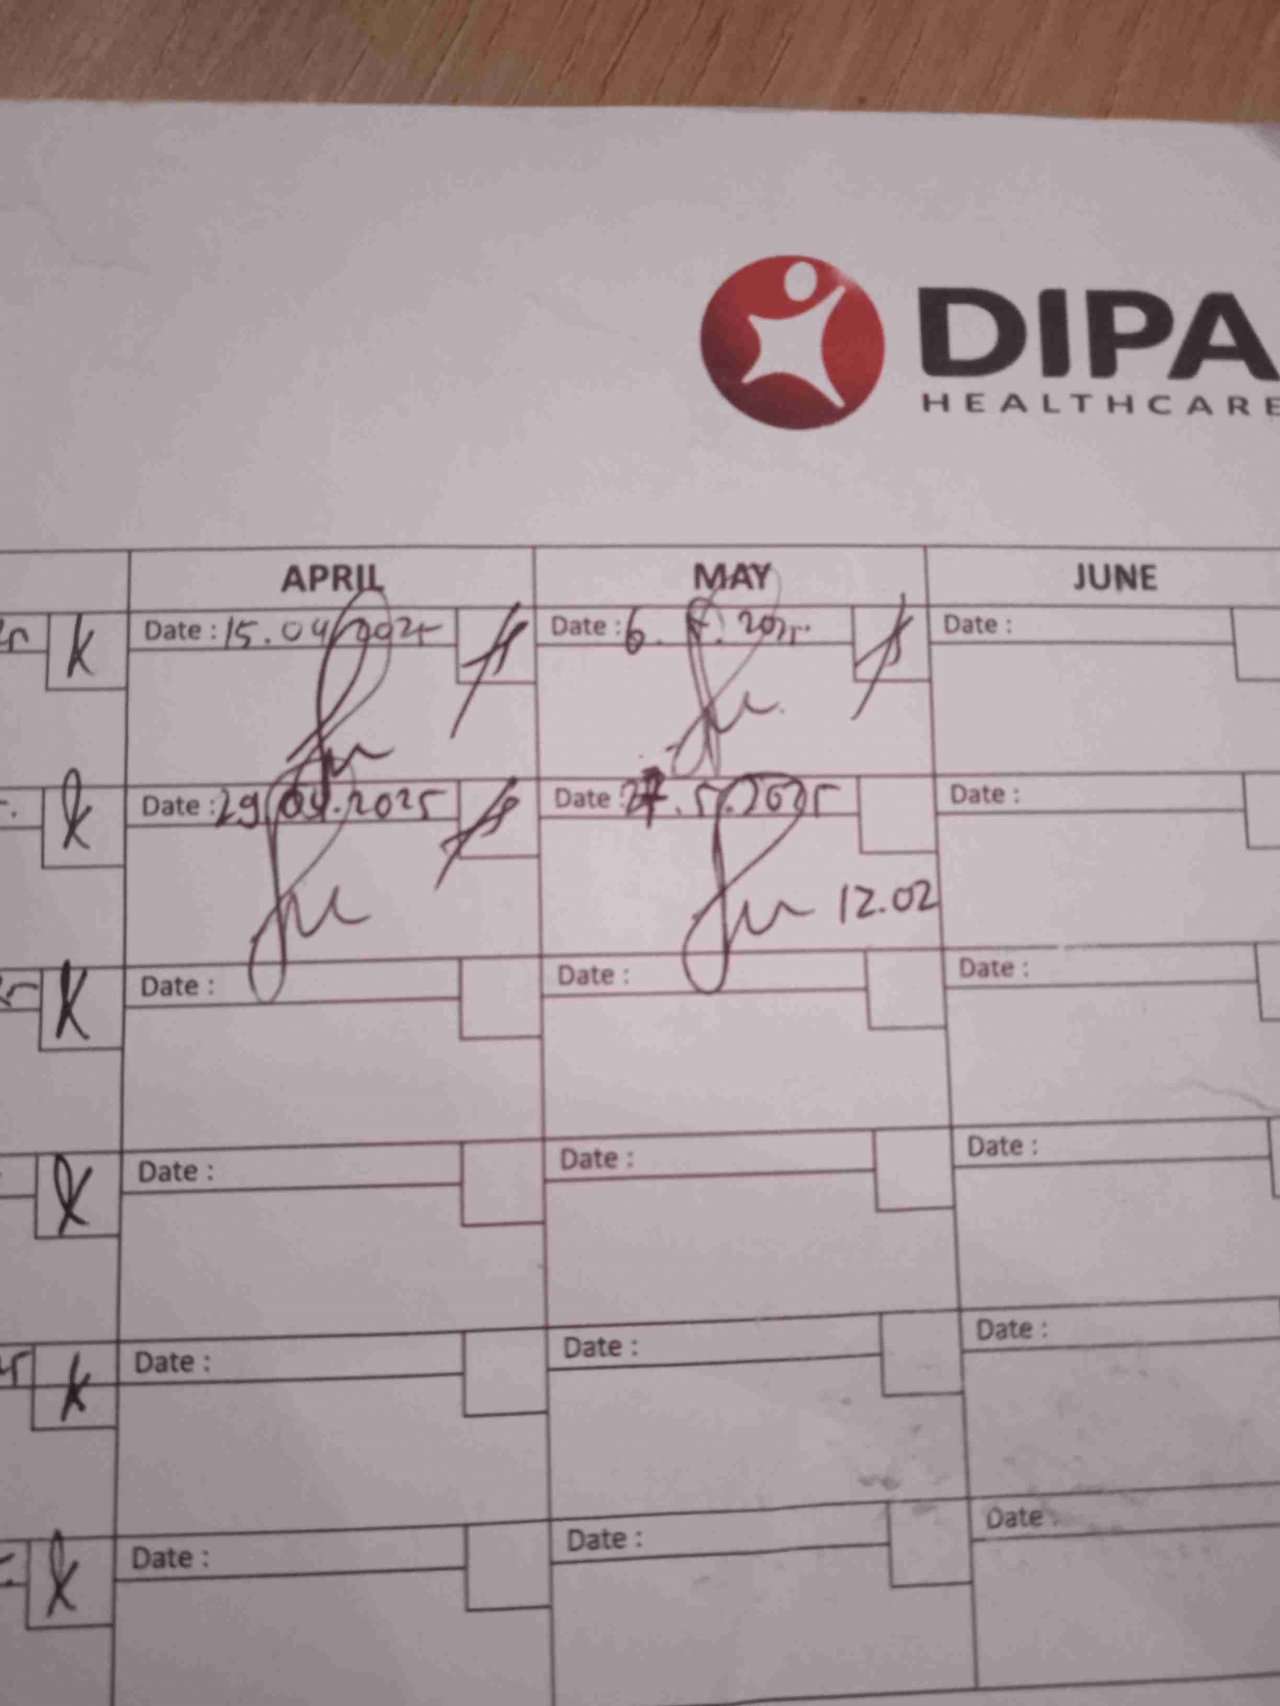 DIPA
HEALTHCARE
APRIL MAY JUNE
k Date : 15.04.2025 Date : 6. 5. 2025. Date :
k Date : 29.04.2025 Date : 27.5.2025 Date :
12.02
k Date : Date : Date :
k Date : Date : Date :
k Date : Date : Date :
k Date : Date : Date :